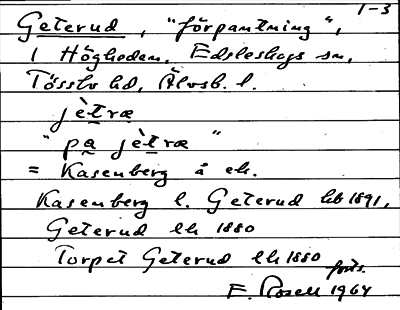 1-3
Geterud, "förpantning",
1 Högheden, Edsleskogs sn,
Tössbo hd, Älvsb. l.
jètræ
"pa jètræ"
= Kasenberg å ek.
Kasenberg l. Geterud hb 1891,
Geterud ek 1880
Torpet Geterud ek 1880
forts.
E. Rosell 1964